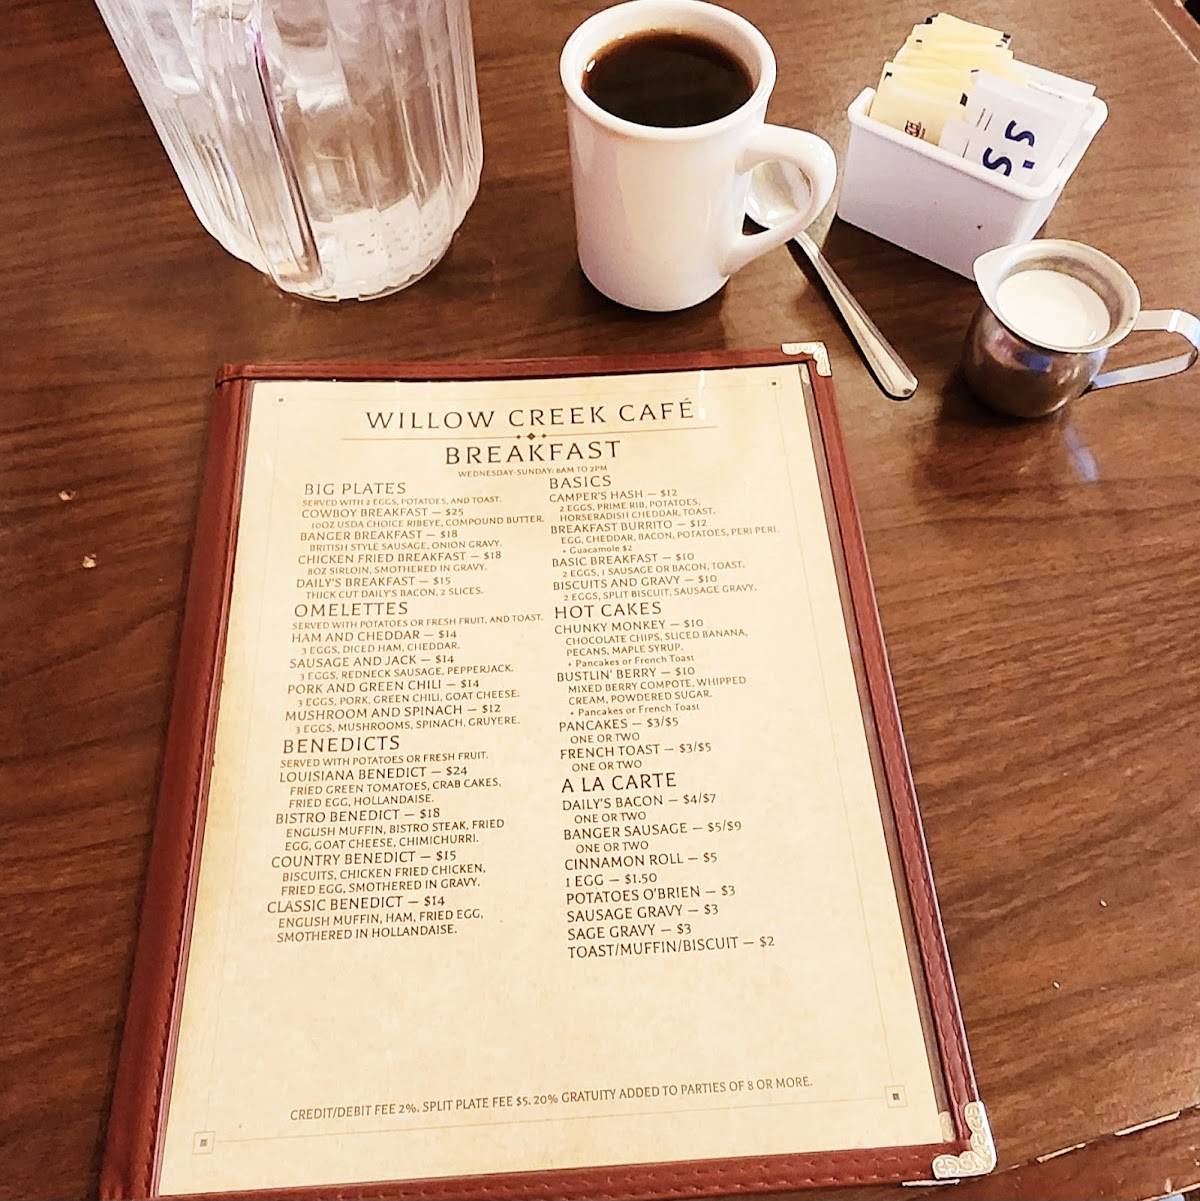 WILLOW CREEK CAFÉ
BREAKFAST
WEDNESDAY-SUNDAY: 8AM TO 2PM
BIG PLATES
SERVED WITH 2 EGGS, POTATOES, AND TOAST.
COWBOY BREAKFAST — $25
10OZ USDA CHOICE RIBEYE, COMPOUND BUTTER.
BANGER BREAKFAST — $18
BRITISH STYLE SAUSAGE, ONION GRAVY.
CHICKEN FRIED BREAKFAST — $18
8OZ SIRLOIN, SMOTHERED IN GRAVY.
DAILY'S BREAKFAST — $15
THICK CUT DAILY'S BACON, 2 SLICES.
OMELETTES
SERVED WITH POTATOES OR FRESH FRUIT, AND TOAST.
HAM AND CHEDDAR — $14
3 EGGS, DICED HAM, CHEDDAR.
SAUSAGE AND JACK — $14
3 EGGS, REDNECK SAUSAGE, PEPPERJACK.
PORK AND GREEN CHILI — $14
3 EGGS, PORK, GREEN CHILI, GOAT CHEESE.
MUSHROOM AND SPINACH — $12
3 EGGS, MUSHROOMS, SPINACH, GRUYERE.
BENEDICTS
SERVED WITH POTATOES OR FRESH FRUIT.
LOUISIANA BENEDICT — $24
FRIED GREEN TOMATOES, CRAB CAKES,
FRIED EGG, HOLLANDAISE.
BISTRO BENEDICT — $18
ENGLISH MUFFIN, BISTRO STEAK, FRIED
EGG, GOAT CHEESE, CHIMICHURRI.
COUNTRY BENEDICT — $15
BISCUITS, CHICKEN FRIED CHICKEN,
FRIED EGG, SMOTHERED IN GRAVY.
CLASSIC BENEDICT — $14
ENGLISH MUFFIN, HAM, FRIED EGG,
SMOTHERED IN HOLLANDAISE.
BASICS
CAMPER'S HASH — $12
2 EGGS, PRIME RIB, POTATOES,
HORSERADISH CHEDDAR, TOAST.
BREAKFAST BURRITO — $12
EGG, CHEDDAR, BACON, POTATOES, PERI PERI.
+ Guacamole $2
BASIC BREAKFAST — $10
2 EGGS, 1 SAUSAGE OR BACON, TOAST.
BISCUITS AND GRAVY — $10
2 EGGS, SPLIT BISCUIT, SAUSAGE GRAVY.
HOT CAKES
CHUNKY MONKEY — $10
CHOCOLATE CHIPS, SLICED BANANA,
PECANS, MAPLE SYRUP.
+ Pancakes or French Toast
BUSTLIN' BERRY — $10
MIXED BERRY COMPOTE, WHIPPED
CREAM, POWDERED SUGAR.
+ Pancakes or French Toast
PANCAKES — $3/$5
ONE OR TWO
FRENCH TOAST — $3/$5
ONE OR TWO
A LA CARTE
DAILY'S BACON — $4/$7
ONE OR TWO
BANGER SAUSAGE — $5/$9
ONE OR TWO
CINNAMON ROLL — $5
1 EGG — $1.50
POTATOES O'BRIEN — $3
SAUSAGE GRAVY — $3
SAGE GRAVY — $3
TOAST/MUFFIN/BISCUIT — $2
CREDIT/DEBIT FEE 2%. SPLIT PLATE FEE $5. 20% GRATUITY ADDED TO PARTIES OF 8 OR MORE.